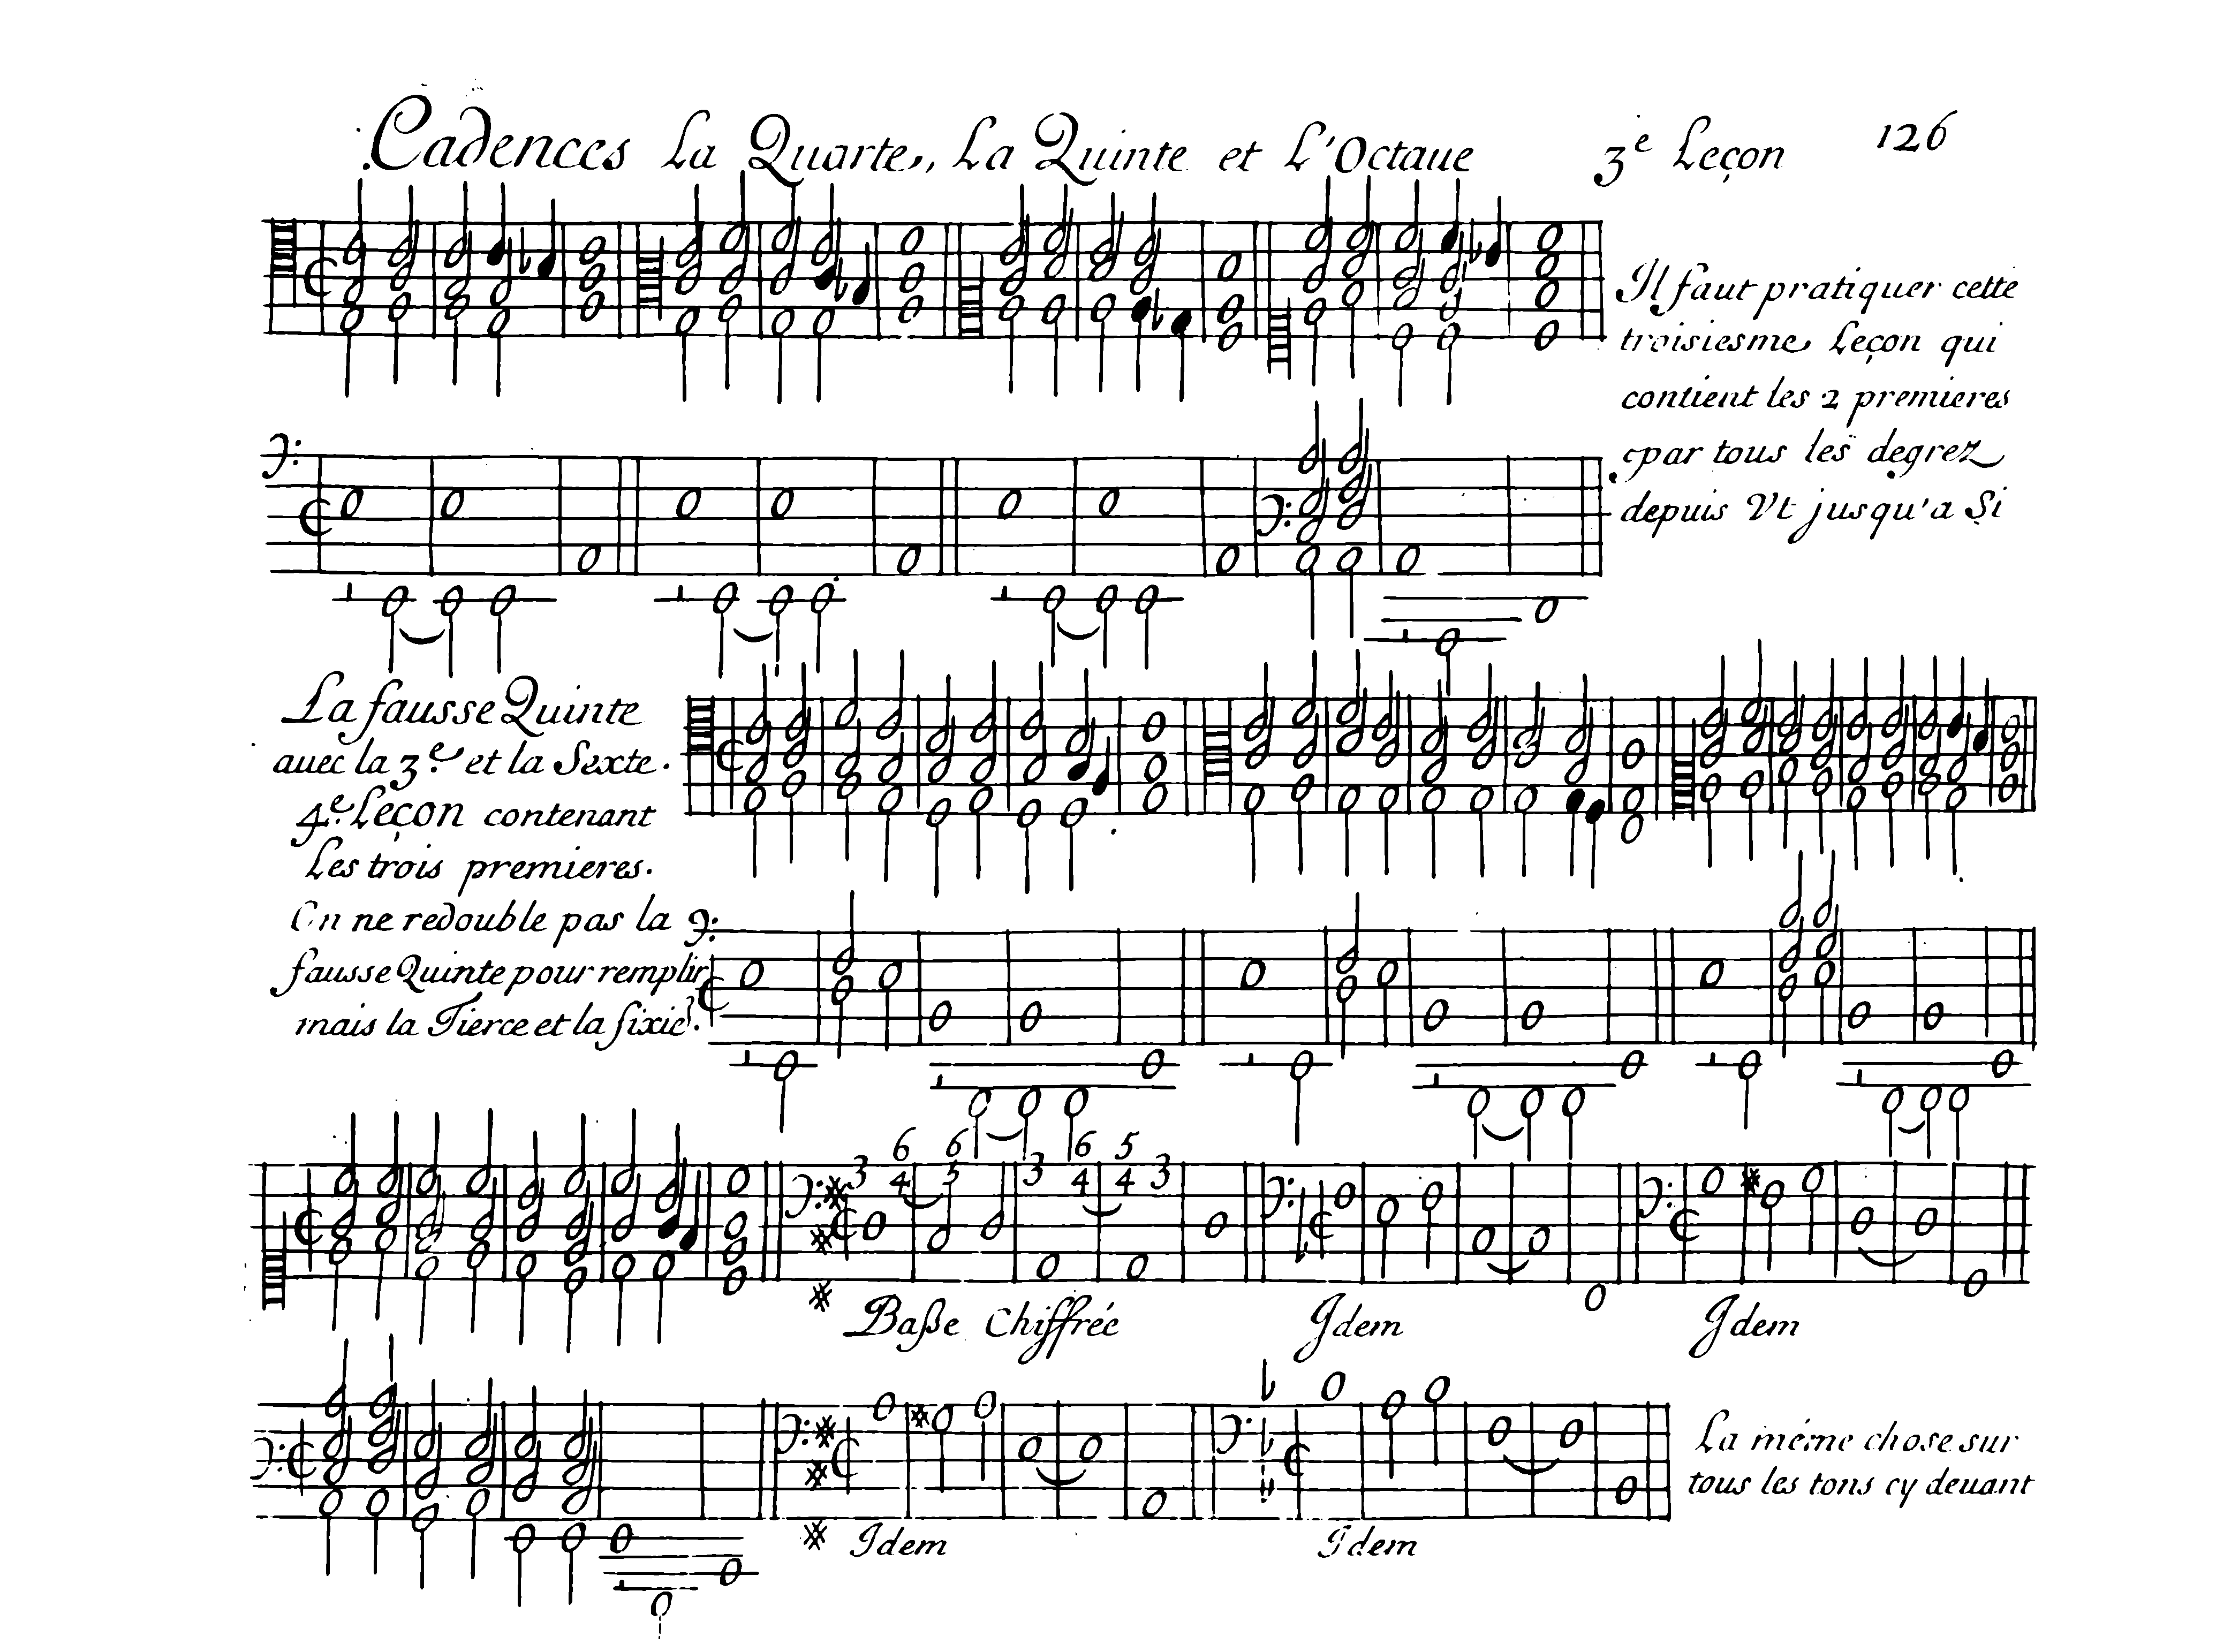 Cadences La Quarte, La Quinte et L'Octaue 3e Leçon 126
Il faut pratiquer cette
troisiesme Leçon qui
contient les 2 premieres
par tous les degrez
depuis Vt jusqu'a Si
La fausse Quinte
auec la 3e et la Sexte.
4e Leçon contenant
Les trois premieres.
On ne redouble pas la
fausse Quinte pour remplir
mais la Tierce et la sixie.
3 6 4 6 5 3 6 4 5 4 3
Baße Chiffrée Idem Idem
Idem Idem
La méme chose sur
tous les tons cy deuant